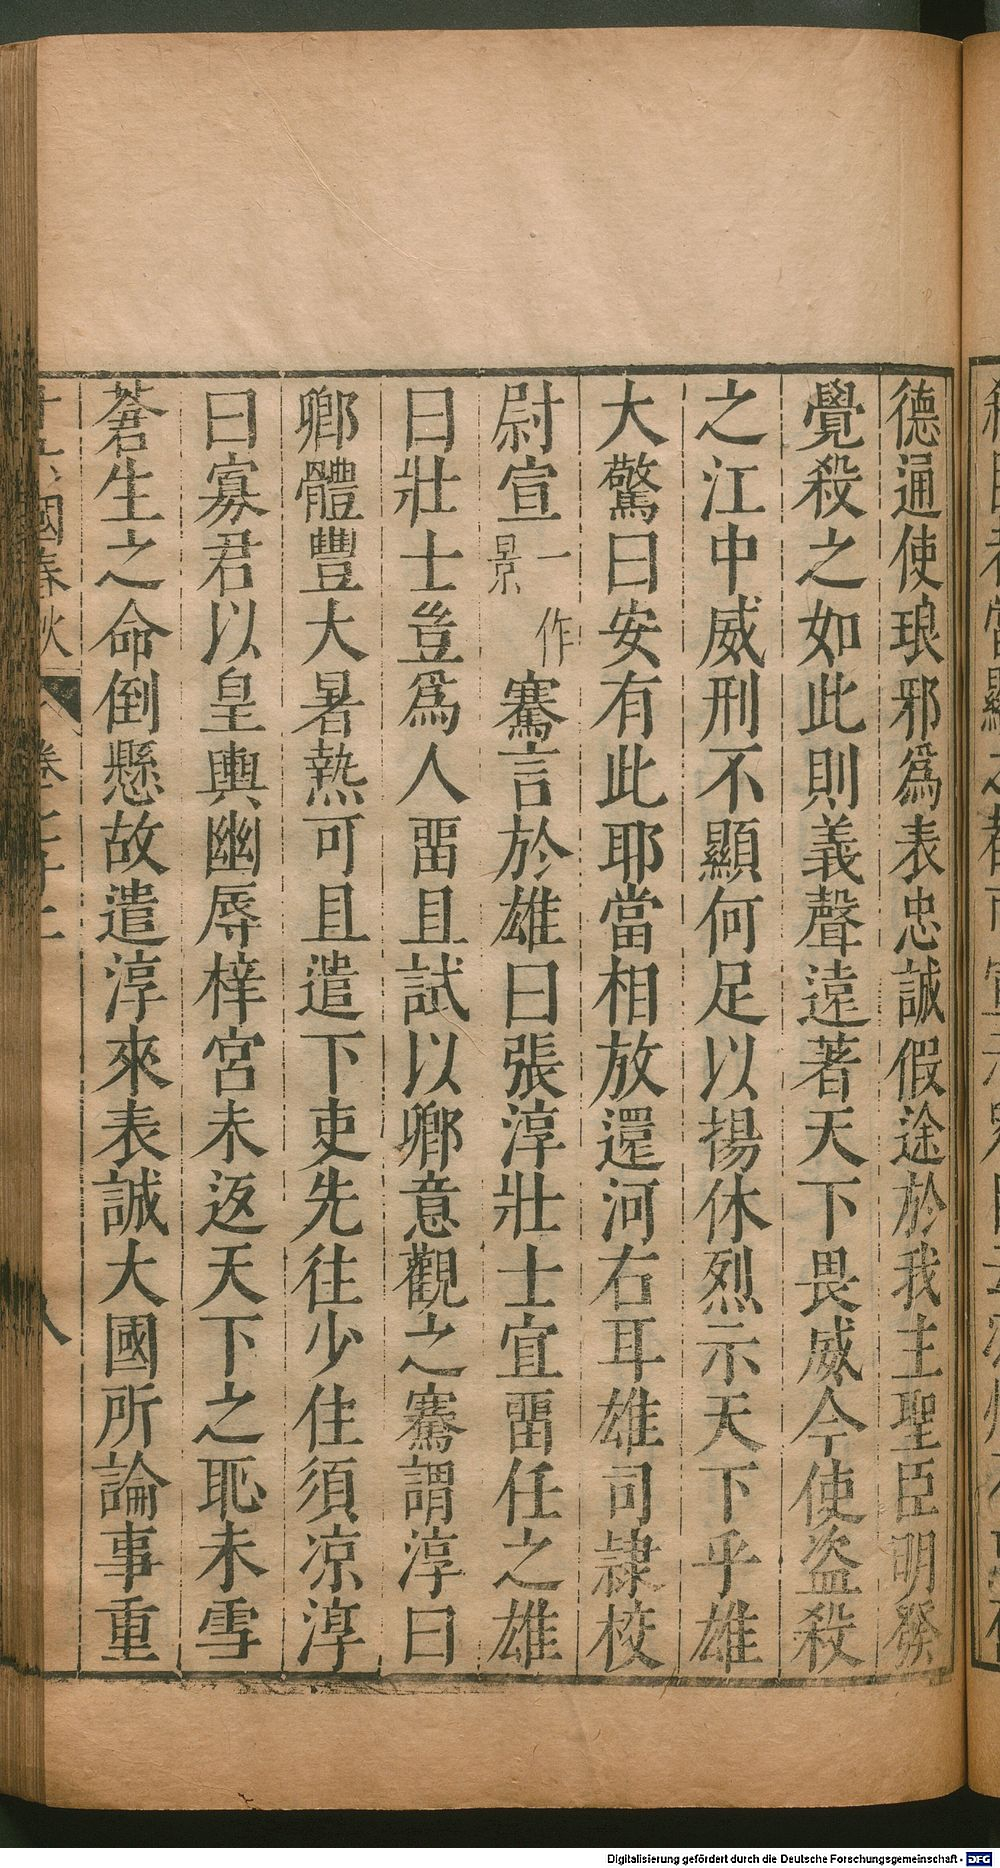 德通使琅邪爲表忠誠假途於我主聖臣明發
覺殺之如此則義聲遠著天下畏威今使盜殺
之江中威刑不顯何足以揚休烈示天下乎雄
大驚曰安有此耶當相放還河右耳雄司隷校
尉宣一作景騫言於雄曰張淳壯士宜畱任之雄
曰壯士豈爲人畱且試以卿意觀之騫謂淳曰
卿體豐大暑熱可且遣下吏先往少住須凉淳
曰寡君以皇輿幽辱梓宮未返天下之恥未雪
蒼生之命倒懸故遣淳來表誠大國所論事重
國春秋 卷七十 八
Digitalisierung gefördert durch die Deutsche Forschungsgemeinschaft - DFG